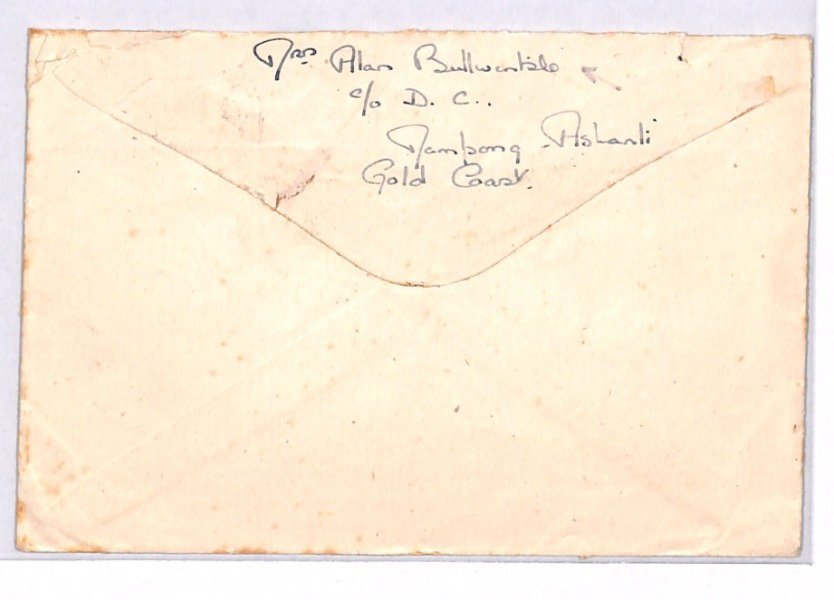 Mrs Alan Bullwinkle
c/o D. C..
Mampong Ashanti
Gold Coast.